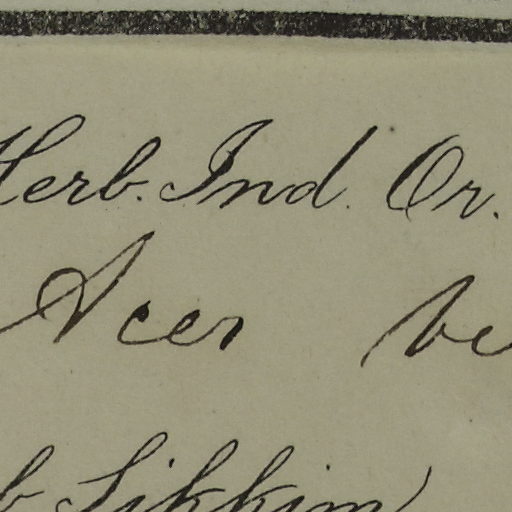 Herb. Ind. Or.
Acer
Sikkim